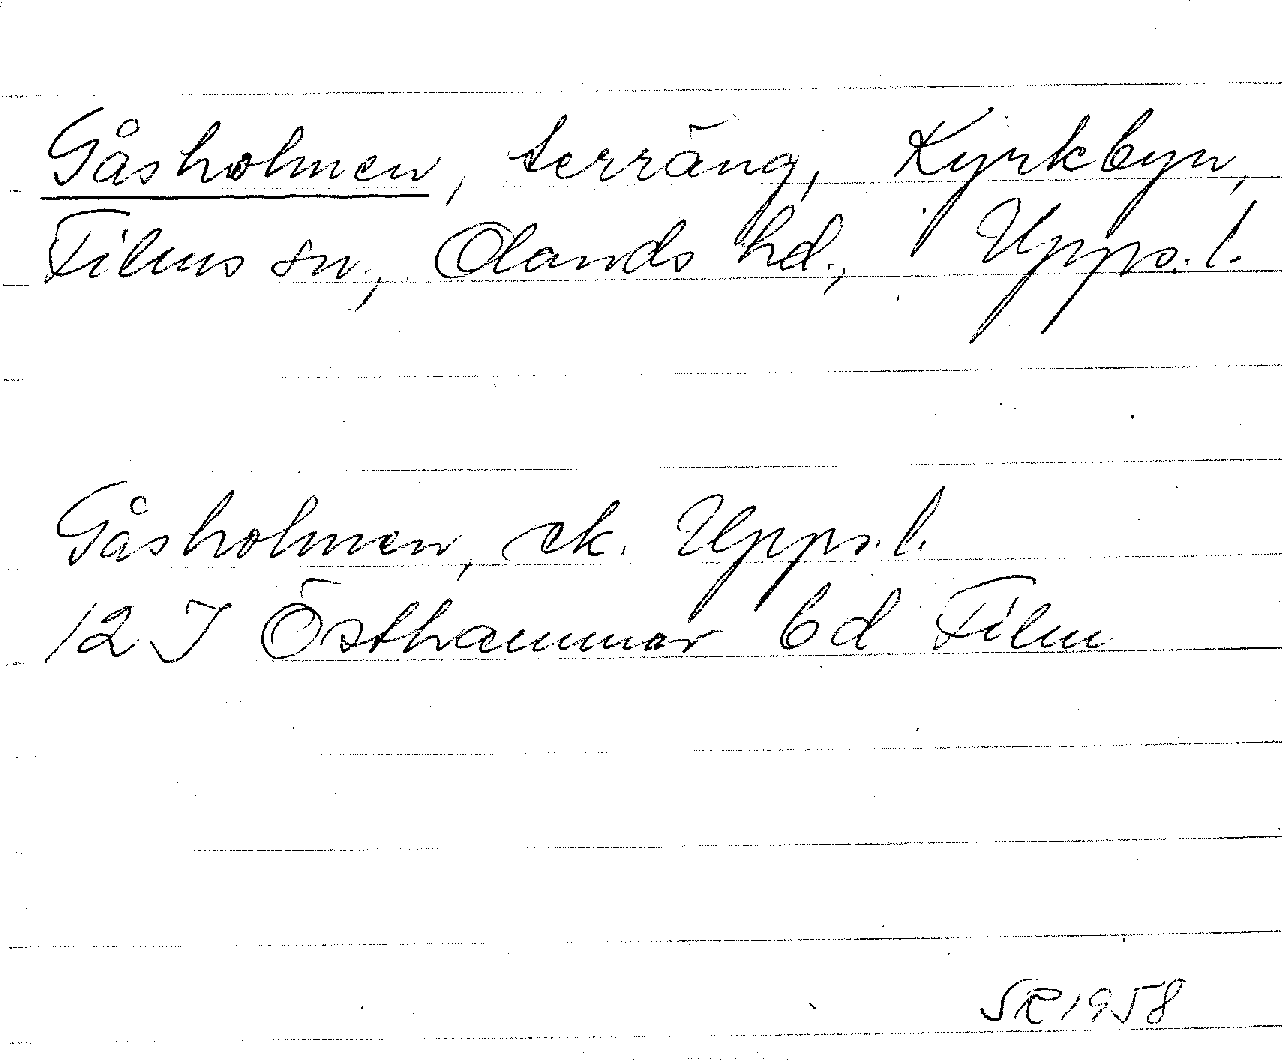 Gåsholmen, terräng, Kyrkbyn,
Films sn, Olands hd., Upps. l.
Gåsholmen, ek. Upps. l.
12 I Östhammar 6d Film
SR 1958